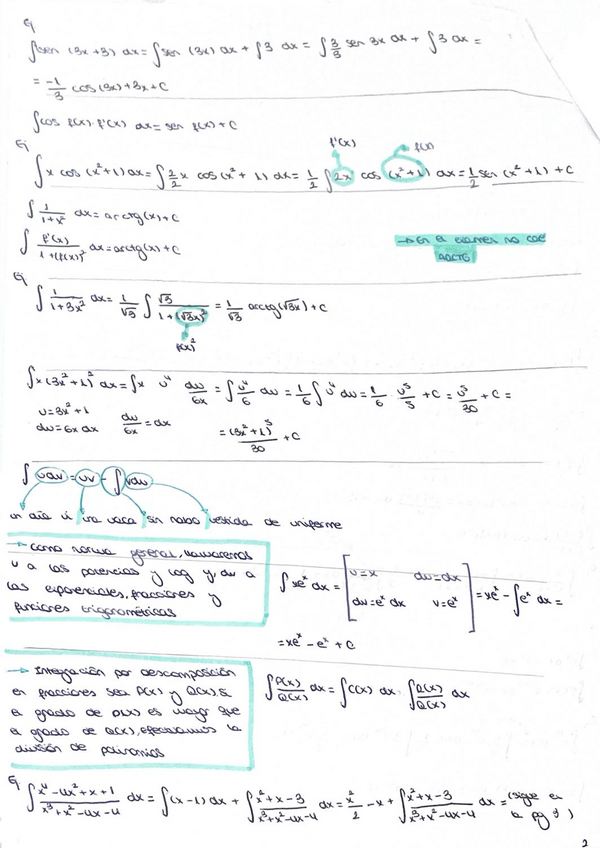 Ej
∫sen (3x+3) dx = ∫sen (3x) dx + ∫3 dx = ∫3/3 sen 3x dx + ∫3 dx =
= -1/3 cos (3x) + 3x + C
∫cos f(x) · f'(x) dx = sen f(x) + C
f'(x) f(x)
Ej
∫x cos (x²+1) dx = ∫2/2 x cos (x²+1) dx = 1/2 ∫2x cos (x²+1) dx = 1/2 sen (x²+1) + C
∫ 1/(1+x²) dx = arctg(x) + C
∫ f'(x)/(1+(f(x))² dx = arctg(x) + C
→ En el examen no cae
ARCTG
Ej
∫ 1/(1+3x²) dx = 1/√3 ∫ √3/(1+(√3x)²) = 1/√3 arctg(√3x) + C
f(x)²
dx = ∫x u⁴ du/6x = ∫u⁴/6 du = 1/6 ∫u⁴ du = 1/6 · u⁵/5 + C = u⁵/30 + C =
u = 3x²+1 du/6x = dx
du = 6x dx = (3x²+1)⁵/30 + C
∫udv = uv - ∫vdu
un día vi una vaca sin rabo vestida de uniforme
→ Como norma general, llamaremos
u a las potencias y log y dv a
las exponenciales, fracciones y
funciones trigonométricas
∫xeˣ dx = [u=x du=dx dv=eˣ dx v=eˣ] = xeˣ - ∫eˣ dx =
= xeˣ - eˣ + C
→ Integración por descomposición
en fracciones sea P(x) y Q(x) si
el grado de P(x) es mayor que
el grado de Q(x), efectuamos la
división de polinomios
∫P(x)/Q(x) dx = ∫C(x) dx · ∫R(x)/Q(x) dx
Ej ∫(x⁴-4x²+x+1)/(x³+x²-4x-4) dx = ∫(x-1) dx + ∫(x²+x-3)/(x³+x²-4x-4) dx = x²/2 - x + ∫(x²+x-3)/(x³+x²-4x-4) dx = (sigue en
la pg )
2